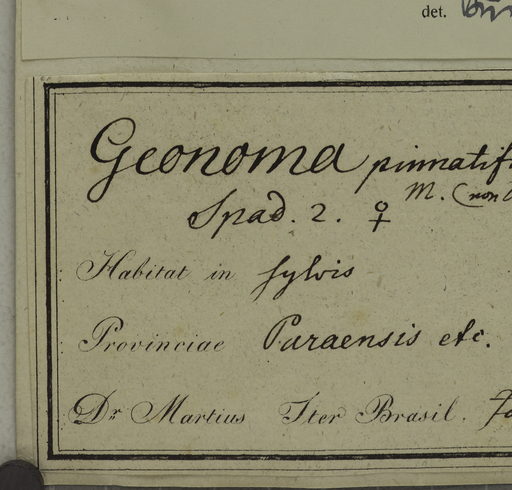 det.
Geonoma pinnatif
M. (non
Spad. 2. ♀
Habitat in sylvis
Provinciae Paraensis etc.
Dr Martius Iter Brasil.